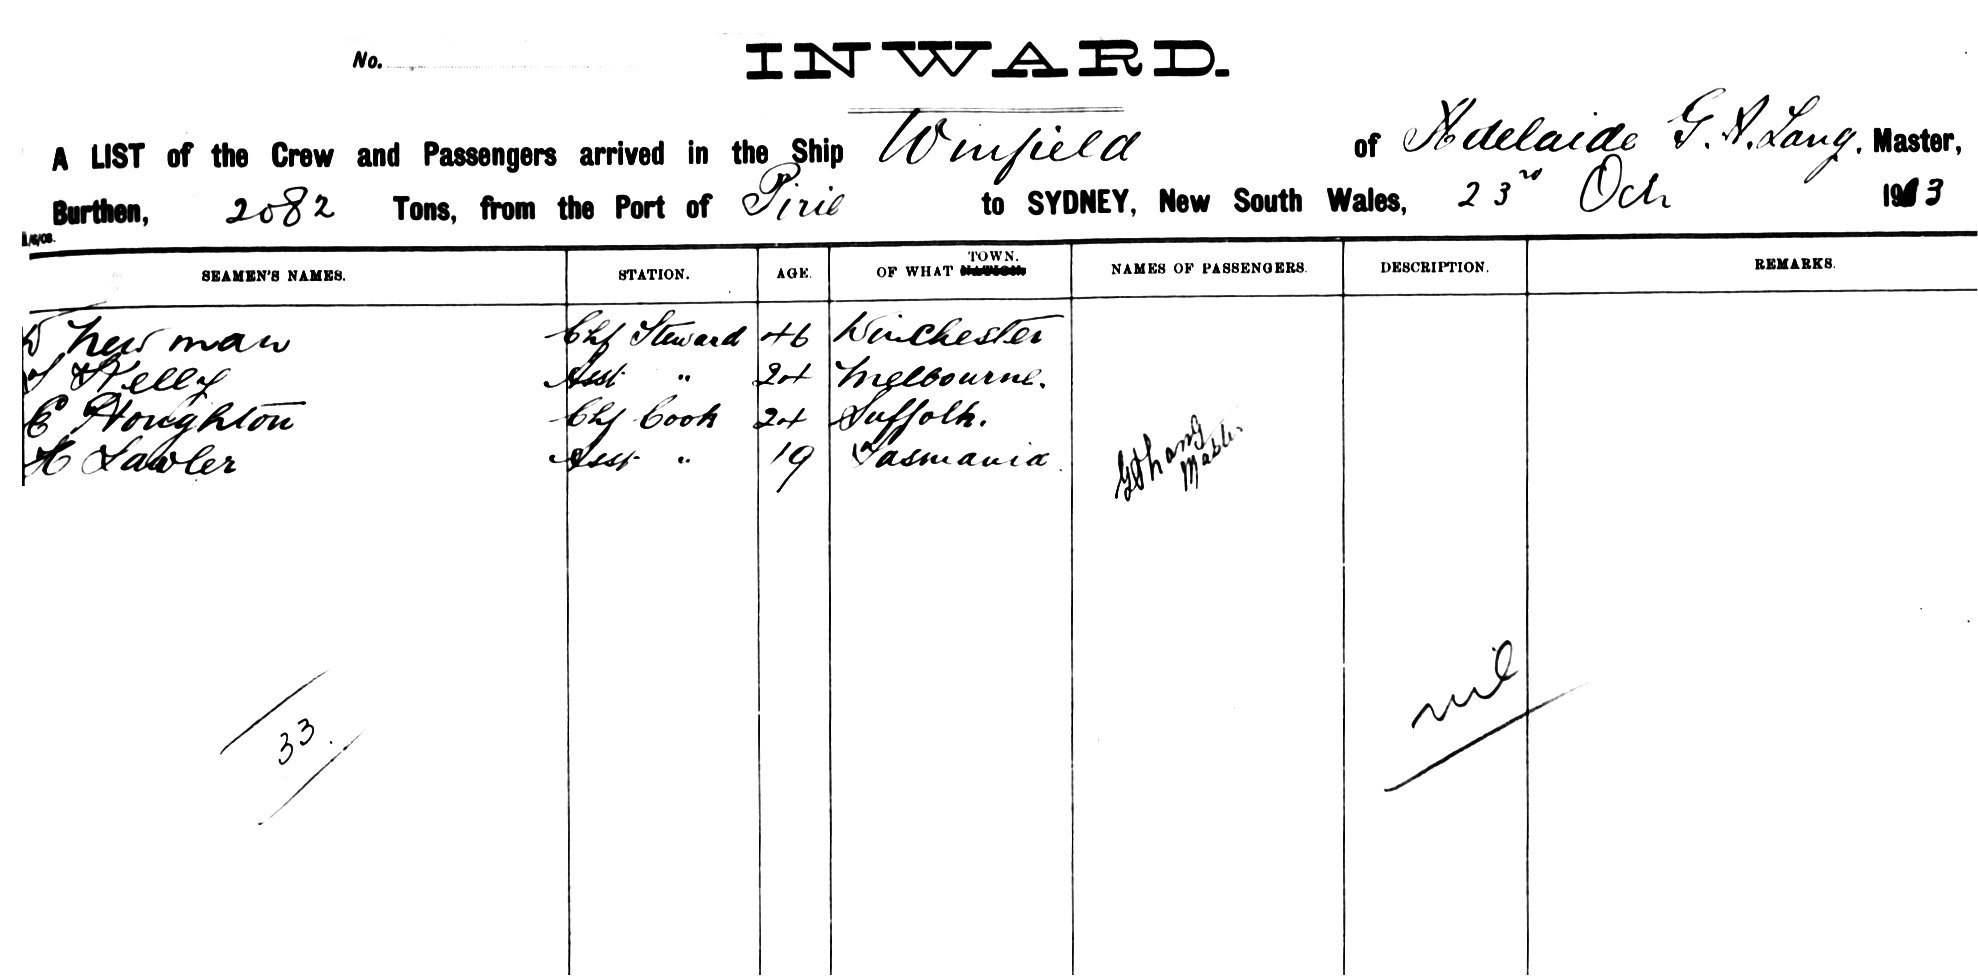 No.
INWARD.
A LIST of the Crew and Passengers arrived in the Ship Winfield of Adelaide G. A. Lang, Master,
Burthen, 2082 Tons, from the Port of Pirie to SYDNEY, New South Wales, 23rd Oct 1913
1/6/08.
SEAMEN'S NAMES. STATION. AGE. OF WHAT TOWN. NATION NAMES OF PASSENGERS. DESCRIPTION. REMARKS.
Newman Chf Steward 46 Winchester
Kelly Asst " 24 Melbourne.
E Houghton Chf Cook 24 Suffolk.
H Lawler Asst " 19 Tasmania
G A Lang
Master
nil
33.